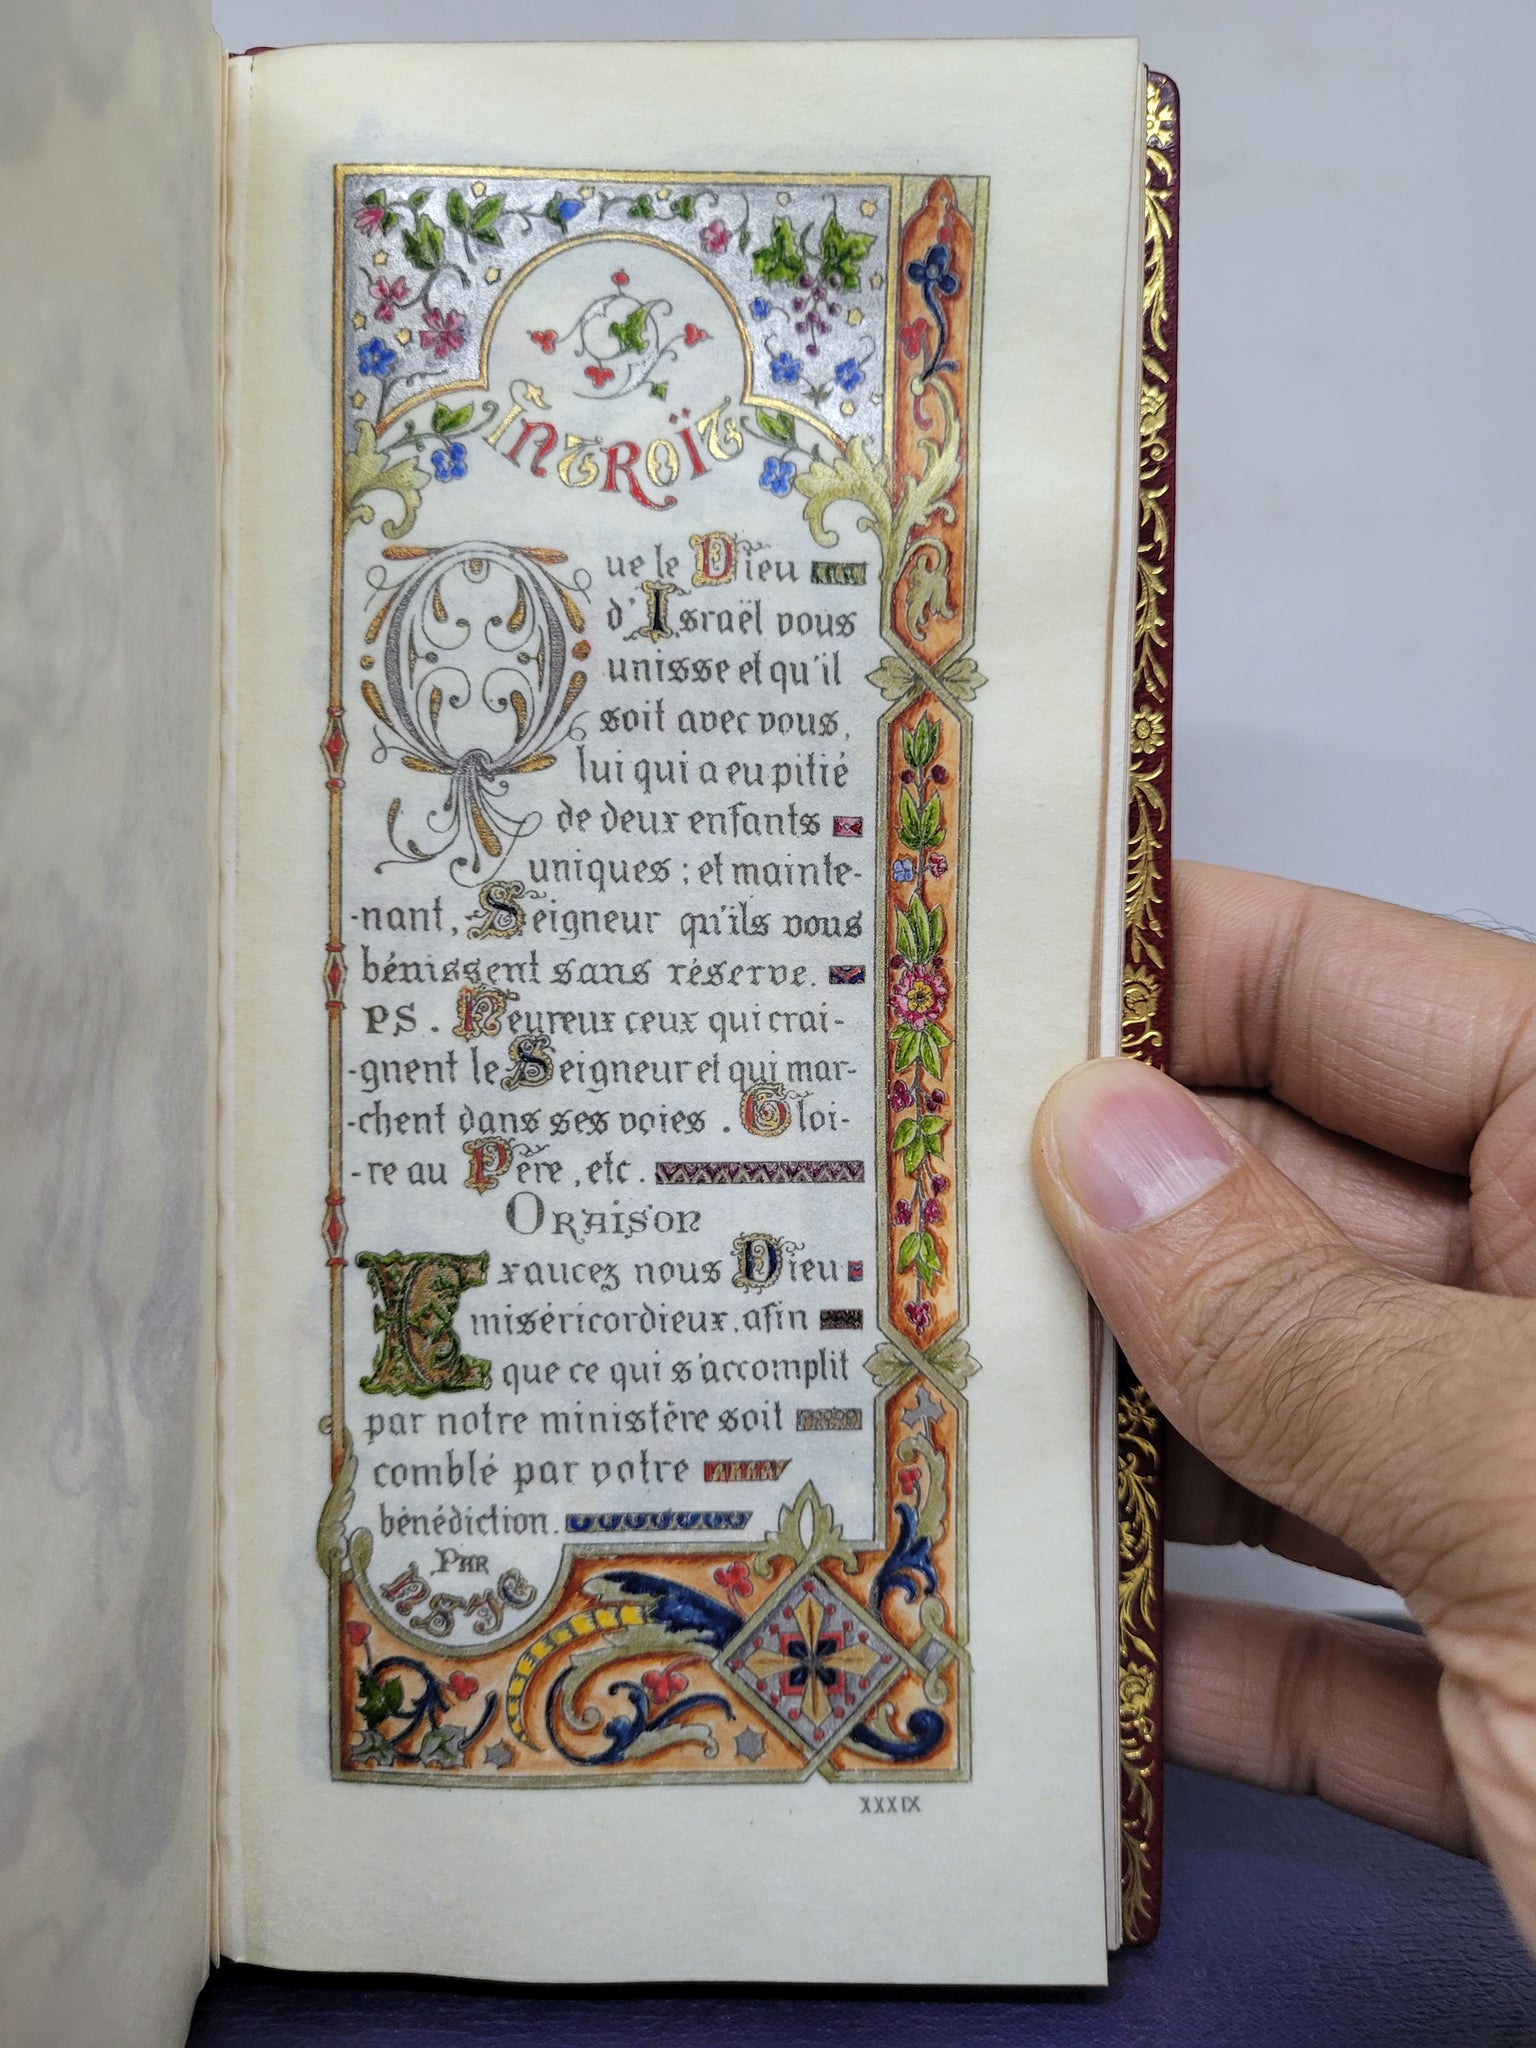 Introït
Que le Dieu
d'Israël vous
unisse et qu'il
soit avec vous,
lui qui a eu pitié
de deux enfants
uniques ; et mainte-
-nant, Seigneur qu'ils vous
bénissent sans réserve.
PS. Heureux ceux qui crai-
-gnent le Seigneur et qui mar-
-chent dans ses voies. Gloi-
-re au Père, etc.
Oraison
Exaucez nous Dieu
miséricordieux, afin
que ce qui s'accomplit
par notre ministère soit
comblé par votre
bénédiction.
Par
NSJC
XXXIX